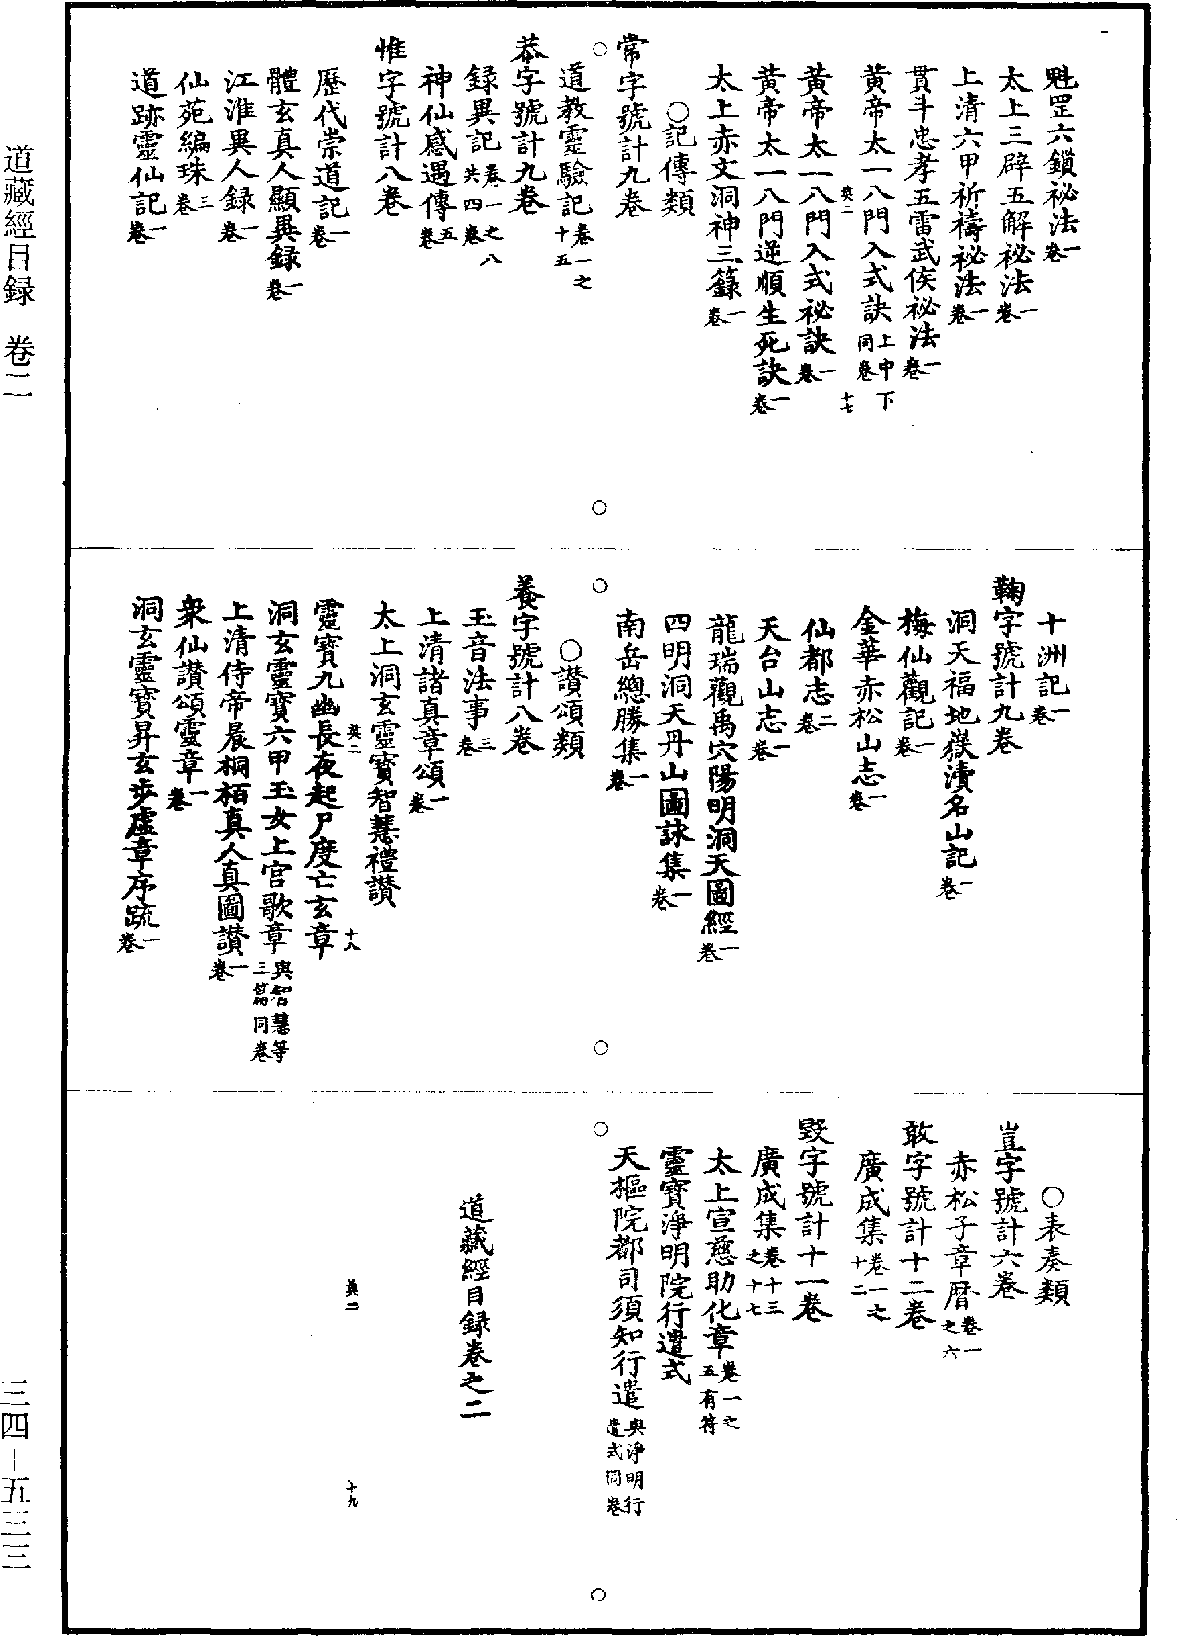 魁罡六鎖祕法一卷
太上三辟五解祕法一卷
上清六甲祈禱祕法一卷
貫斗忠孝五雷武侯祕法一卷
黄帝太一八門入式訣上中下同卷
英二 十七
黄帝太一八門入式祕訣一卷
黄帝太一八門逆順生死訣一卷
太上赤文洞神三籙一卷
○記傳類
常字號計九卷
道教靈驗記卷一之十五
恭字號計九卷
録異記卷一之八共四卷
神仙感遇傳五卷
惟字號計八卷
歷代崇道記一卷
體玄真人顯異録一卷
江淮異人録一卷
仙苑編珠三卷
道跡靈仙記一卷
十洲記一卷
鞠字號計九卷
洞天福地嶽瀆名山記一卷
梅仙觀記一卷
金華赤松山志一卷
仙都志二卷
天台山志一卷
龍瑞觀禹穴陽明洞天圖經一卷
四明洞天丹山圖詠集一卷
南岳總勝集一卷
○讃頌類
養字號計八卷
玉音法事三卷
上清諸真章頌一卷
太上洞玄靈寳智慧禮讃
英二 十八
靈寳九幽長夜起尸度亡玄章
洞玄靈寳六甲玉女上宫歌章與智慧等三篇同卷
上清侍帝晨桐栢真人真圖讃一卷
衆仙讃頌靈章一卷
洞玄靈寳昇玄步虛章序疏一卷
○表奏類
豈字號計六卷
赤松子章暦卷一之六
敢字號計十二卷
廣成集卷一之十二
毀字號計十一卷
廣成集卷十三之十七
太上宣慈助化章卷一之五有符
靈寳淨明院行遣式
天樞院都司須知行遣與淨明行遣式同卷
英二 十九
道藏經目録卷之二
道藏經目録 卷二
三四—五三三